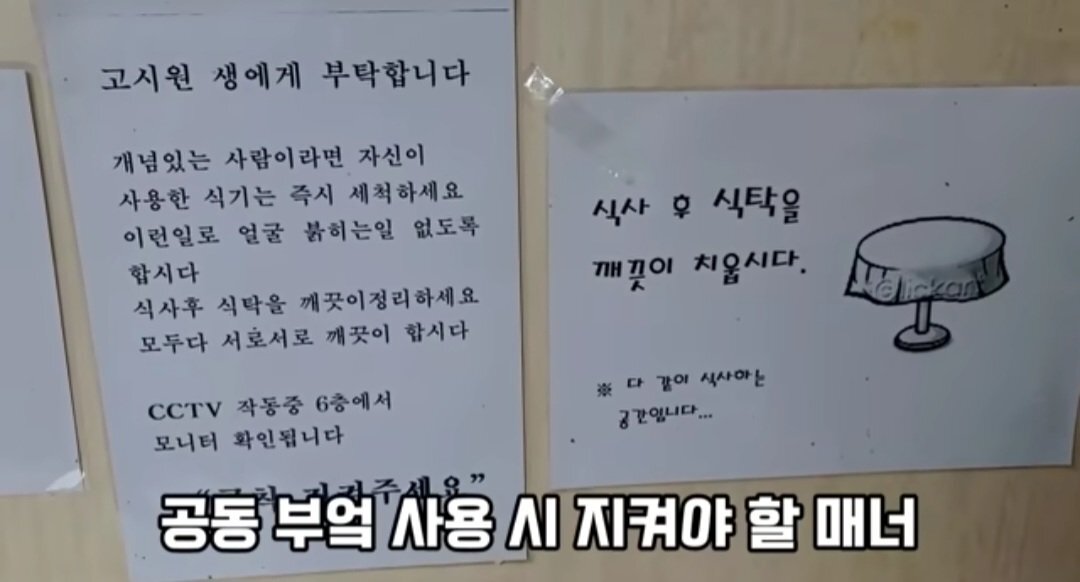 고시원 생에게 부탁합니다
개념있는 사람이라면 자신이
사용한 식기는 즉시 세척하세요
이런일로 얼굴 붉히는일 없도록
합시다
식사후 식탁을 깨끗이정리하세요
모두다 서로서로 깨끗이 합시다
CCTV 작동중 6층에서
모니터 확인됩니다
식사 후 식탁을
깨끗이 치웁시다.
※ 다 같이 식사하는
공간입니다...
공동 부엌 사용 시 지켜야 할 매너